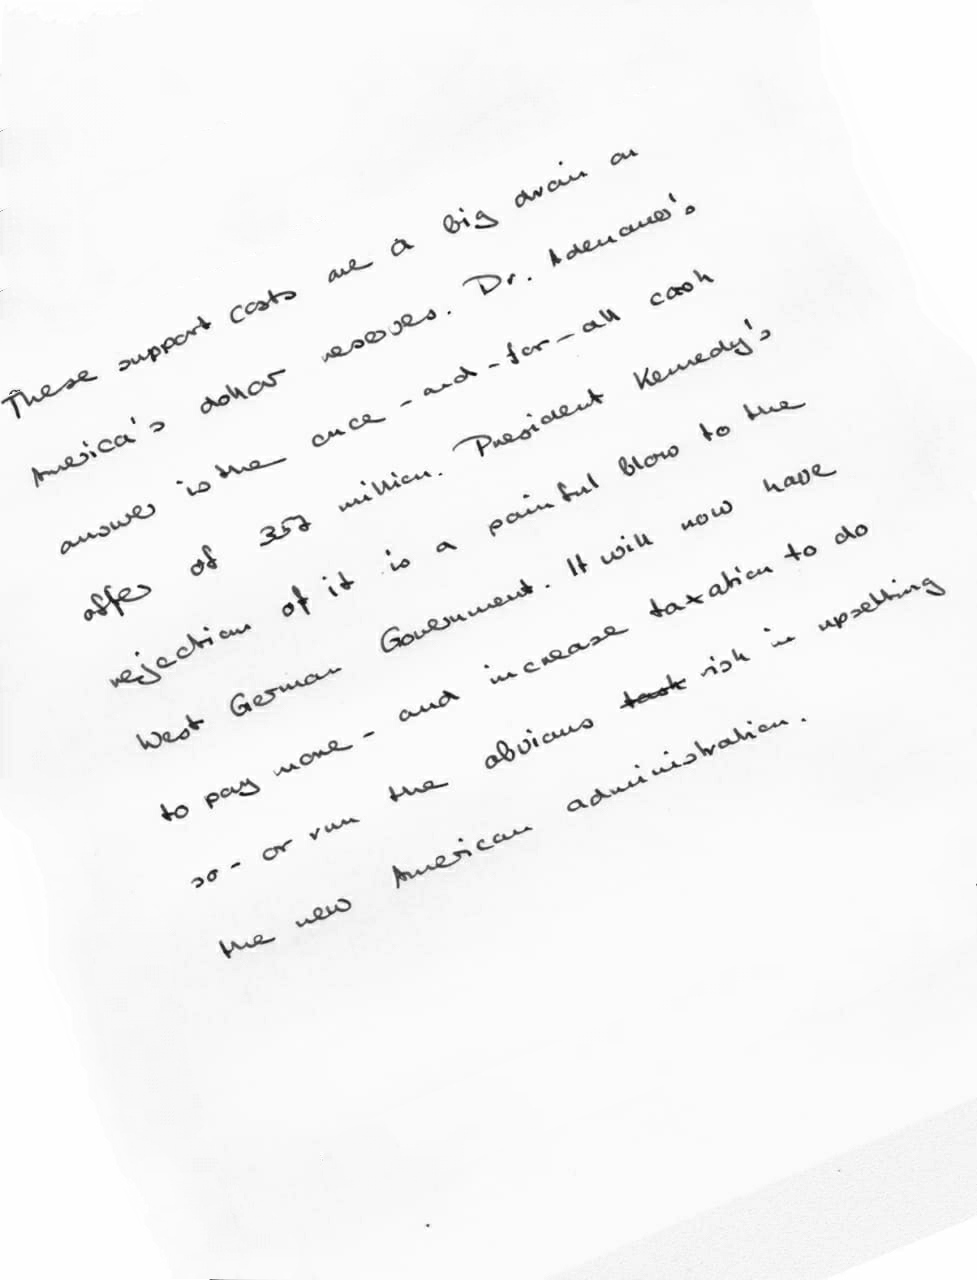 These support costs are a big drain on
America's dollar reserves. Dr. Adenauer's
answer is the once-and-for-all cash
offer of 357 million. President Kennedy's
rejection of it is a painful blow to the
West German Government. It will now have
to pay more - and increase taxation to do
so - or run the obvious risk in upsetting
the new American administration.